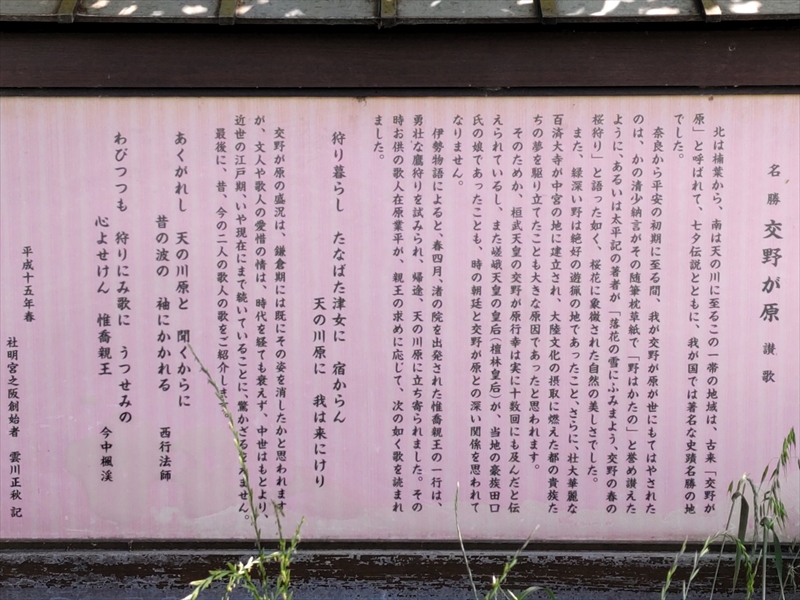 名勝 交野が原 讃歌
北は楠葉から、南は天の川に至るこの一帯の地域は、古来「交野が
原」と呼ばれて、七夕伝説とともに、我が国では著名な史蹟名勝の地
でした。
奈良から平安の初期に至る間、我が交野が原が世にもてはやされた
のは、かの清少納言がその随筆枕草紙で「野はかたの」と誉め讃えた
ように、あるいは太平記の著者が「落花の雪にふみまよう、交野の春の
桜狩り」と語った如く、桜花に象徴された自然の美しさでした。
また、緑深い野は絶好の遊猟の地であったこと、さらに、壮大華麗な
百済大寺が中宮の地に建立され、大陸文化の摂取に燃えた都の貴族た
ちの夢を駆り立てたことも大きな原因であったと思われます。
そのためか、桓武天皇の交野が原行幸は実に十数回にも及んだと伝
えられているし、また嵯峨天皇の皇后(檀林皇后)が、当地の豪族田口
氏の娘であったことも、時の朝廷と交野が原との深い関係を思われて
なりません。
伊勢物語によると、春四月、渚の院を出発された惟喬親王の一行は、
勇壮な鷹狩りを試みられ、帰途、天の川原に立ち寄られました。その
時お供の歌人在原業平が、親王の求めに応じて、次の如く歌を読まれ
ました。
狩り暮らし たなばた津女に 宿からん
天の川原に 我は来にけり
交野が原の盛況は、鎌倉期には既にその姿を消したかと思われます
が、文人や歌人の愛惜の情は、時代を経ても衰えず、中世はもとより、
近世の江戸期、いや現在にまで続いていることに、驚かざるをえません。
最後に、昔、今の二人の歌人の歌をご紹介しま
あくがれし 天の川原と 聞くからに
昔の波の 袖にかかれる 西行法師
わびつつも 狩りにみ歌に うつせみの
心よせけん 惟喬親王 今中楓渓
平成十五年春
社明宮之阪創始者 雲川正秋 記